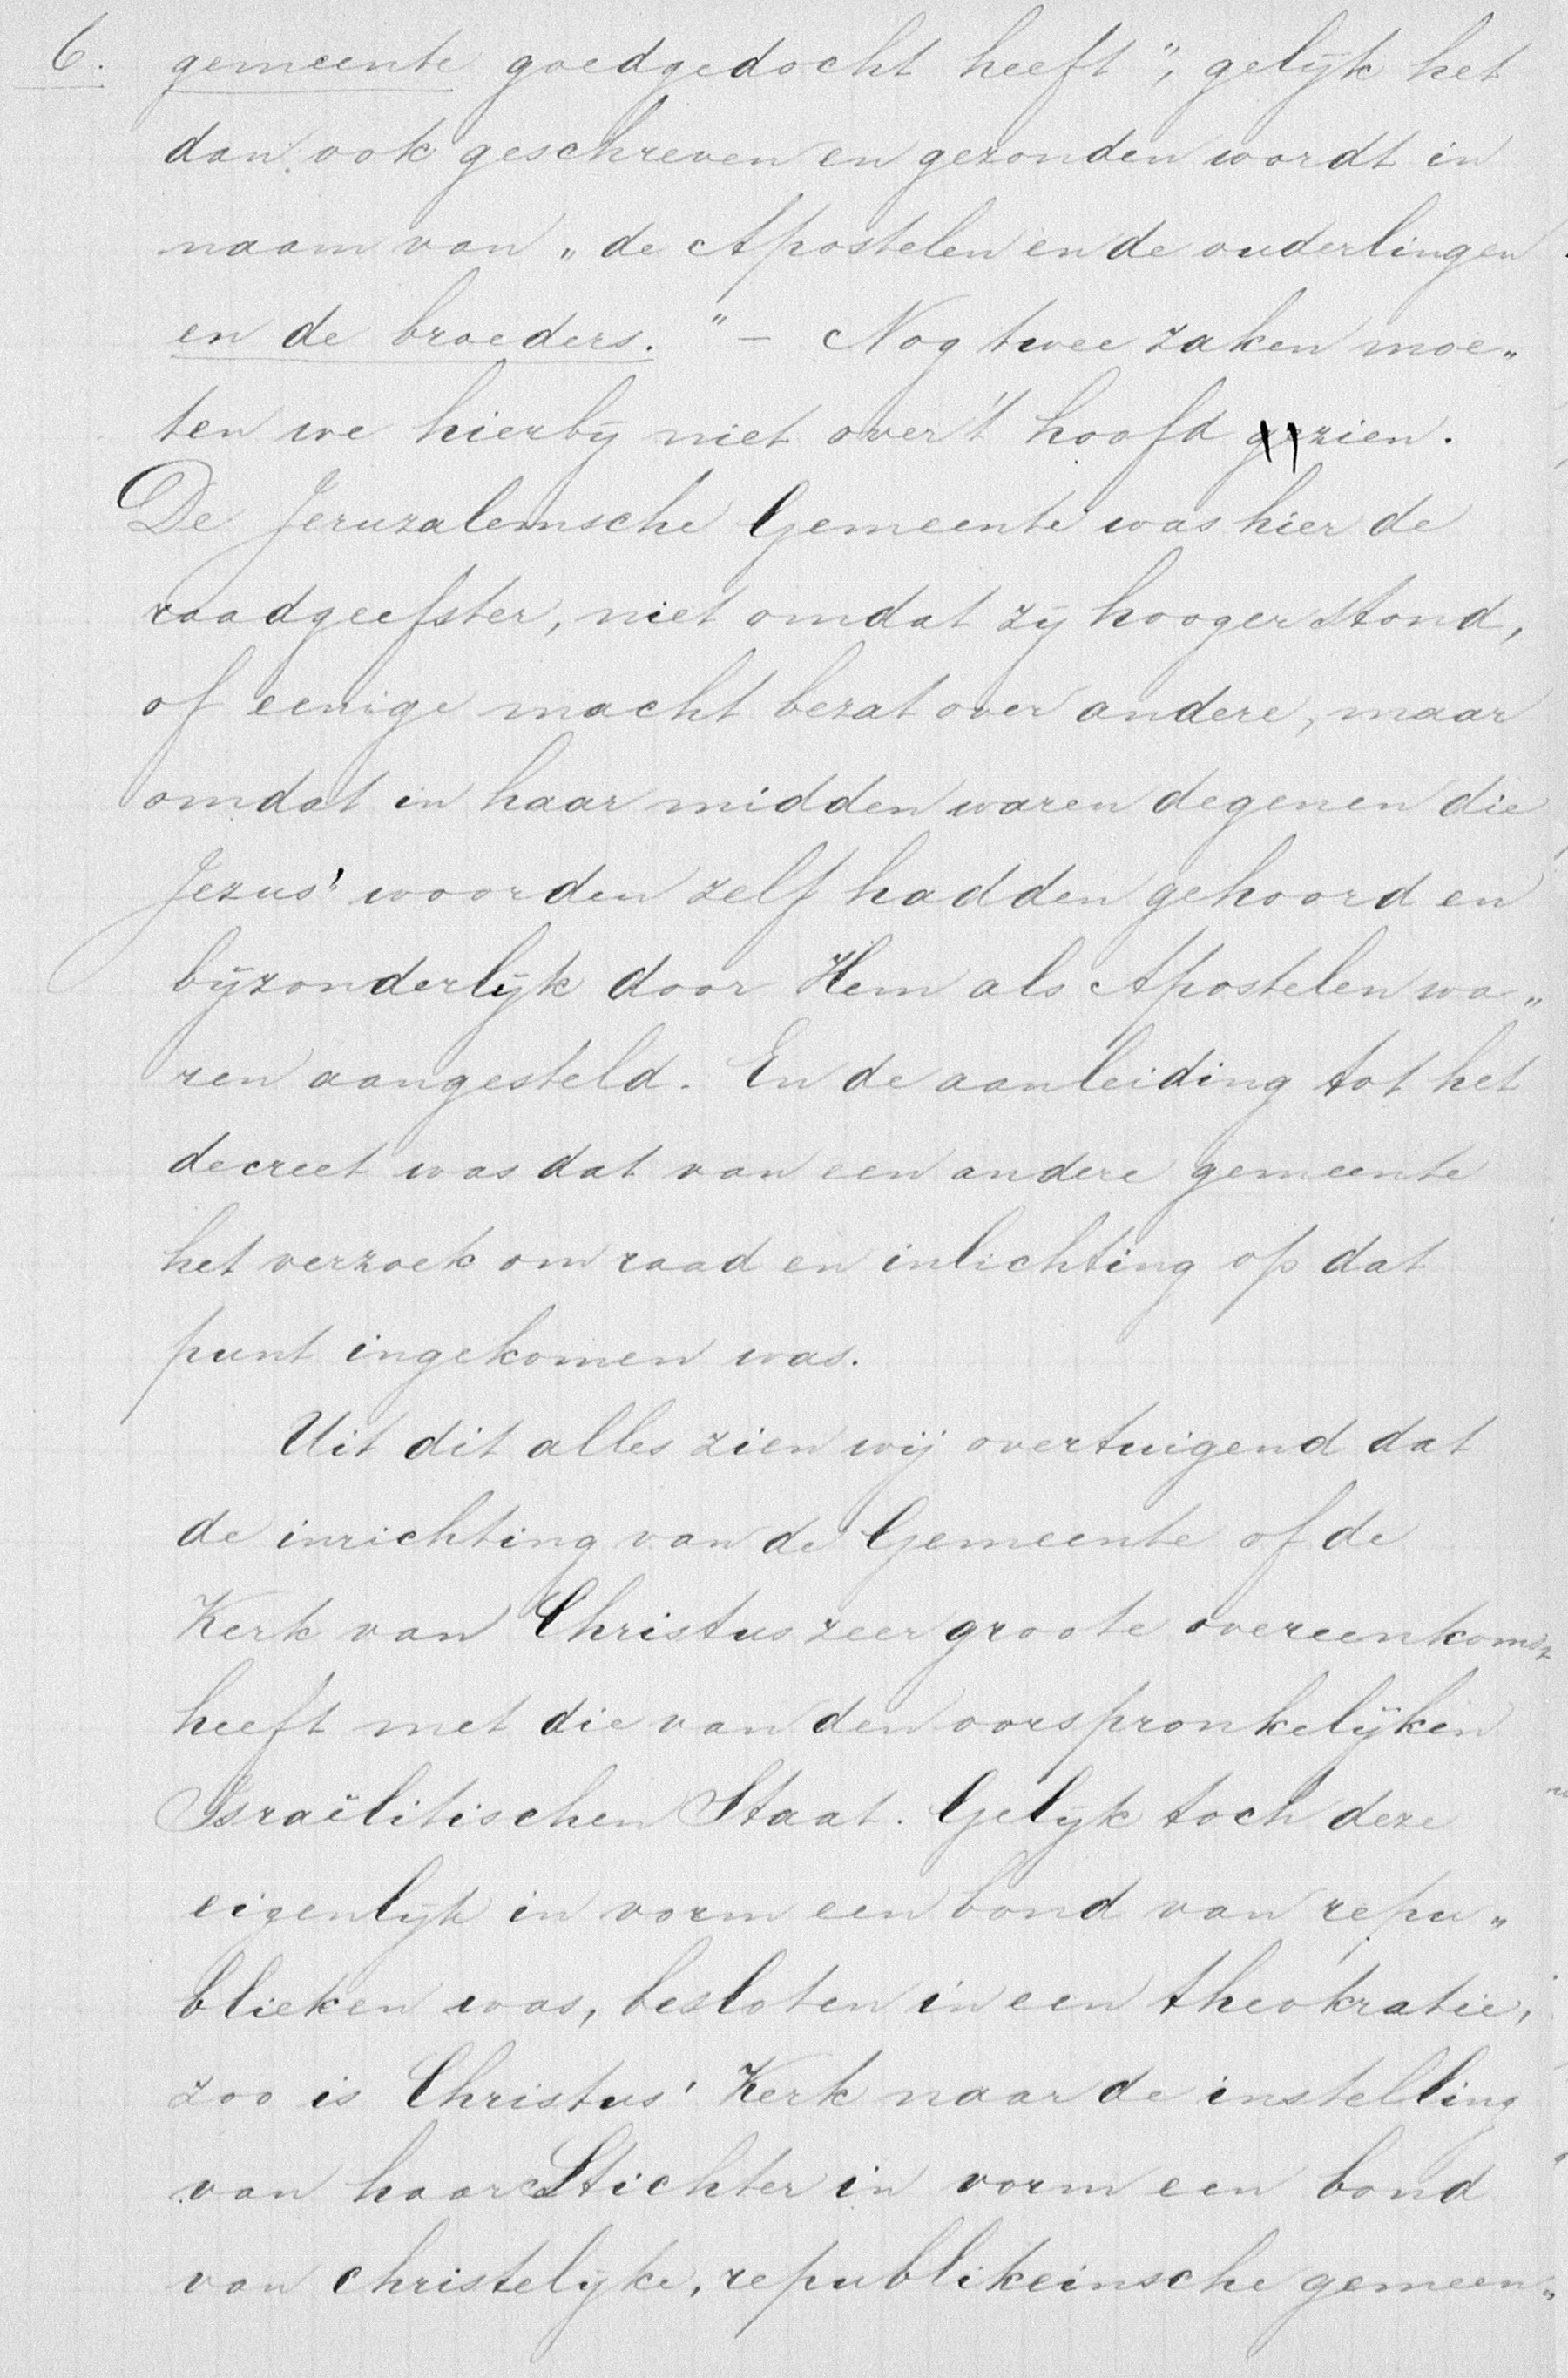 6. gemeente goedgedocht heeft", gelijk het
dan ook geschreven en gezonden wordt in
naam van „de Apostelen en de ouderlingen
en de broeders." – Nog twee zaken moe„
ten we hierbij niet over 't hoofd gezien.
De Jeruzalemsche Gemeente was hier de
raadgeefster, niet omdat zij hooger stond,
of eenige macht bezat over andere, maar
omdat in haar midden waren degenen die
Jezus' woorden zelf hadden gehoord en
bijzonderlijk door Hem als Apostelen wa„
ren aangesteld. En de aanleiding tot het
decreet was dat van een andere gemeente
het verzoek om raad en inlichting op dat
punt ingekomen was.
Uit dit alles zien wij overtuigend dat
de inrichting van de Gemeente of de
Kerk van Christus zeer groote overeenkomst
heeft met die van den oorspronkelijken
Israëlitischen Staat. Gelijk toch deze
eigenlijk in vorm een bond van repu„
blieken was, besloten in een theokratie,
zoo is Christus' Kerk naar de instelling
van haar Stichter in vorm een bond
van christelijke, republikeinsche gemeen„